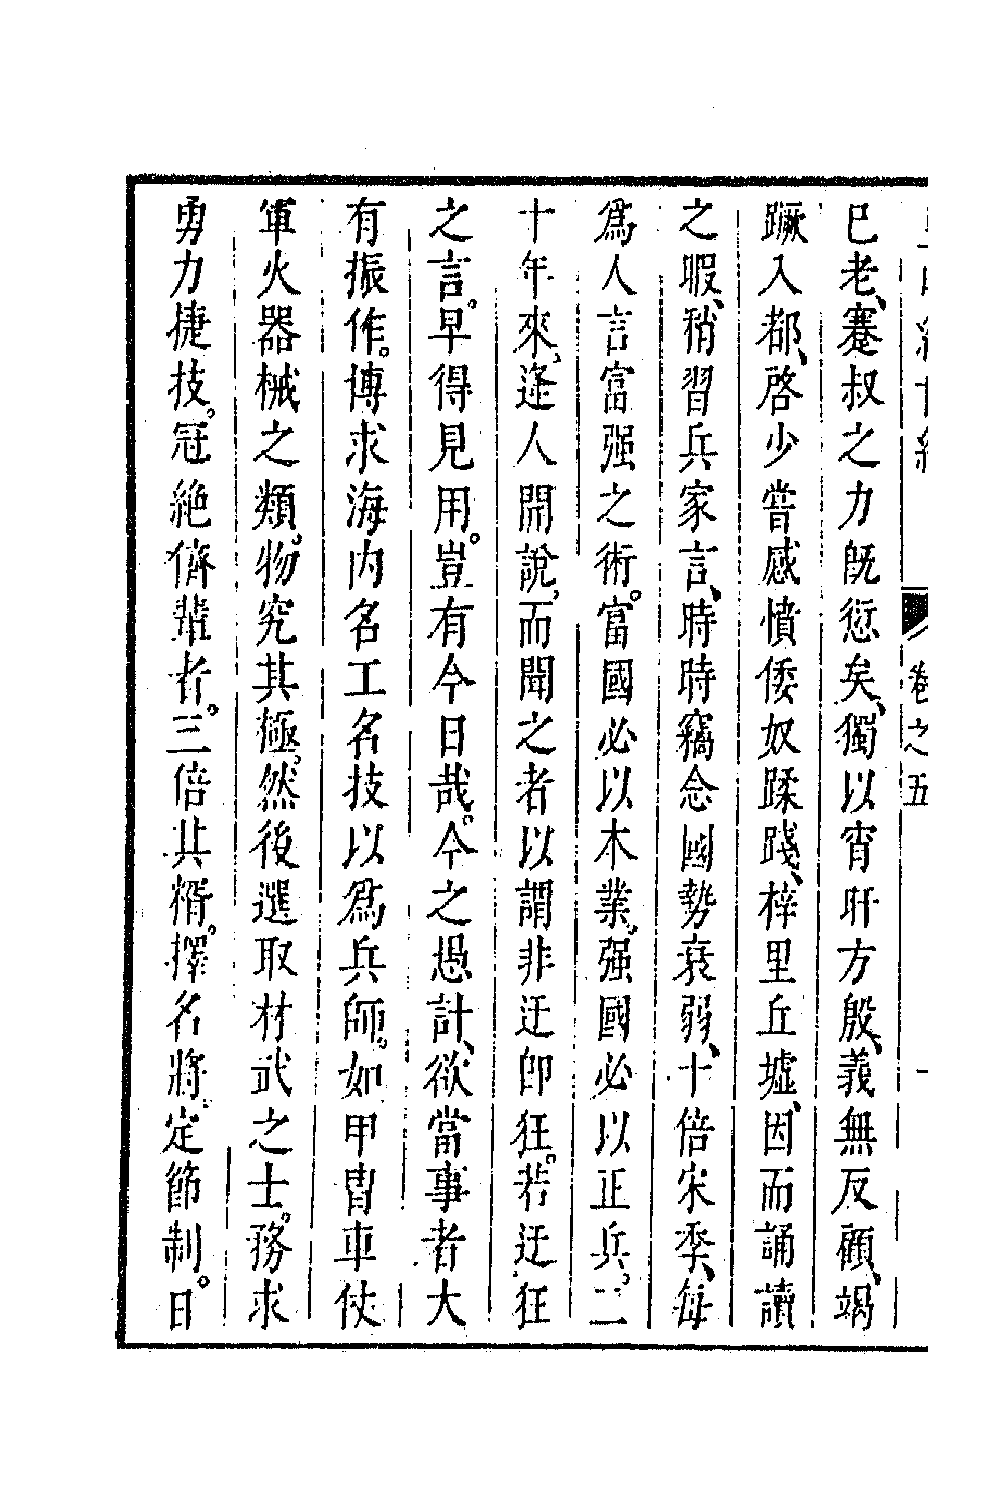 卷之五
已老、蹇叔之力旣愆矣、獨以宵旰方殷、義無反顧、竭
蹶入都、啓少嘗感憤倭奴蹂踐、梓里丘墟、因而誦讀
之暇、稍習兵家言、時時竊念國勢衰弱、十倍宋季、每
爲人言富强之術。富國必以木業、强國必以正兵。二
十年來、逢人開說、而聞之者以謂非迂卽狂。若迂狂
之言。早得見用。豈有今日哉。今之愚計、欲當事者大
有振作。博求海內名工名技以爲兵師。如甲冑車仗
軍火器械之類。物究其極。然後選取材武之士。務求
勇力捷技。冠絶儕輩者。三倍其糈。擇名將。定節制。日